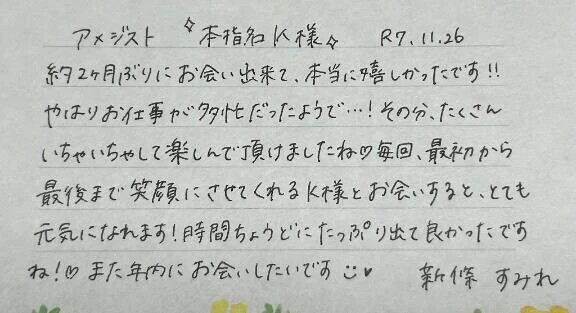 アメジスト ✧本指名K様✧ R7.11.26
約2ヶ月ぶりにお会い出来て、本当に嬉しかったです!!
やはりお仕事が多忙だったようで…!その分、たくさん
いちゃいちゃして楽しんで頂けましたね♡毎回、最初から
最後まで笑顔にさせてくれるK様とお会いすると、とても
元気になれます!時間ちょうどにたっぷり出て良かったです
ね!♡また年内にお会いしたいです☺♥ 新條 すみれ